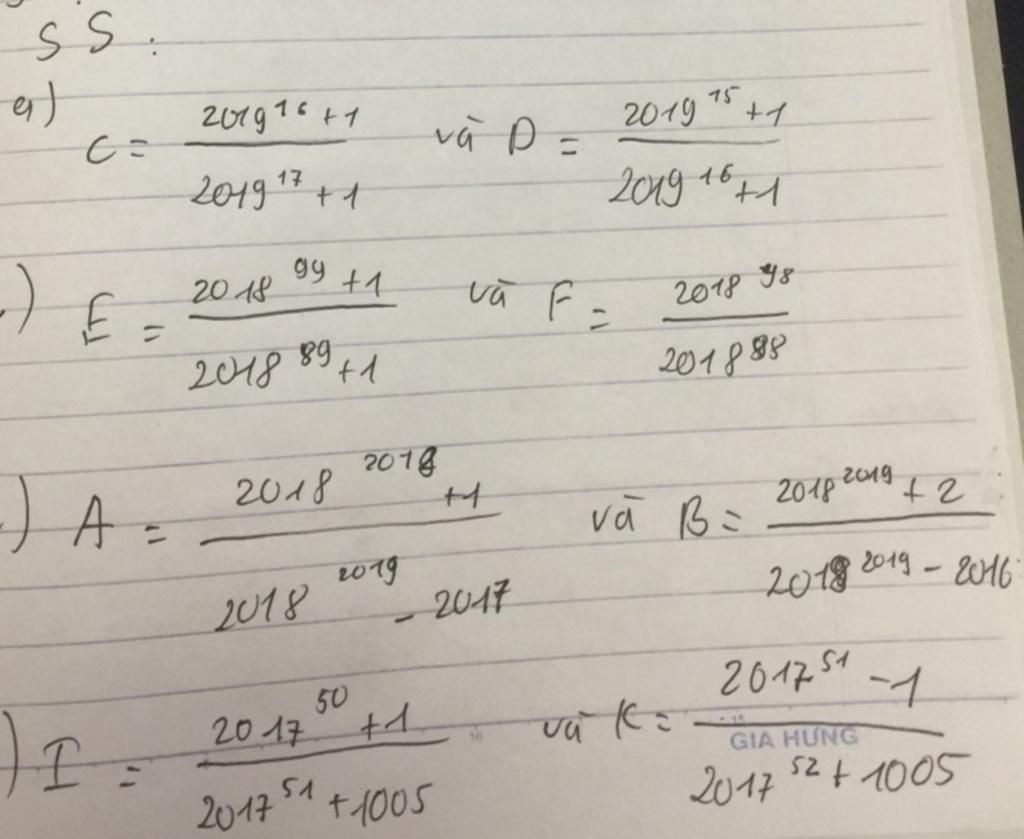 SS:
a) C = (2019^16 + 1)/(2019^17 + 1) và D = (2019^15 + 1)/(2019^16 + 1)
) E = (2018^99 + 1)/(2018^89 + 1) và F = (2018^98)/(2018^88)
) A = (2018^2018 + 1)/(2018^2019 - 2017) và B = (2018^2019 + 2)/(2018^2019 - 2016)
) I = (2017^50 + 1)/(2017^51 + 1005) và K = (2017^51 - 1)/(2017^52 + 1005)
GIA HƯNG